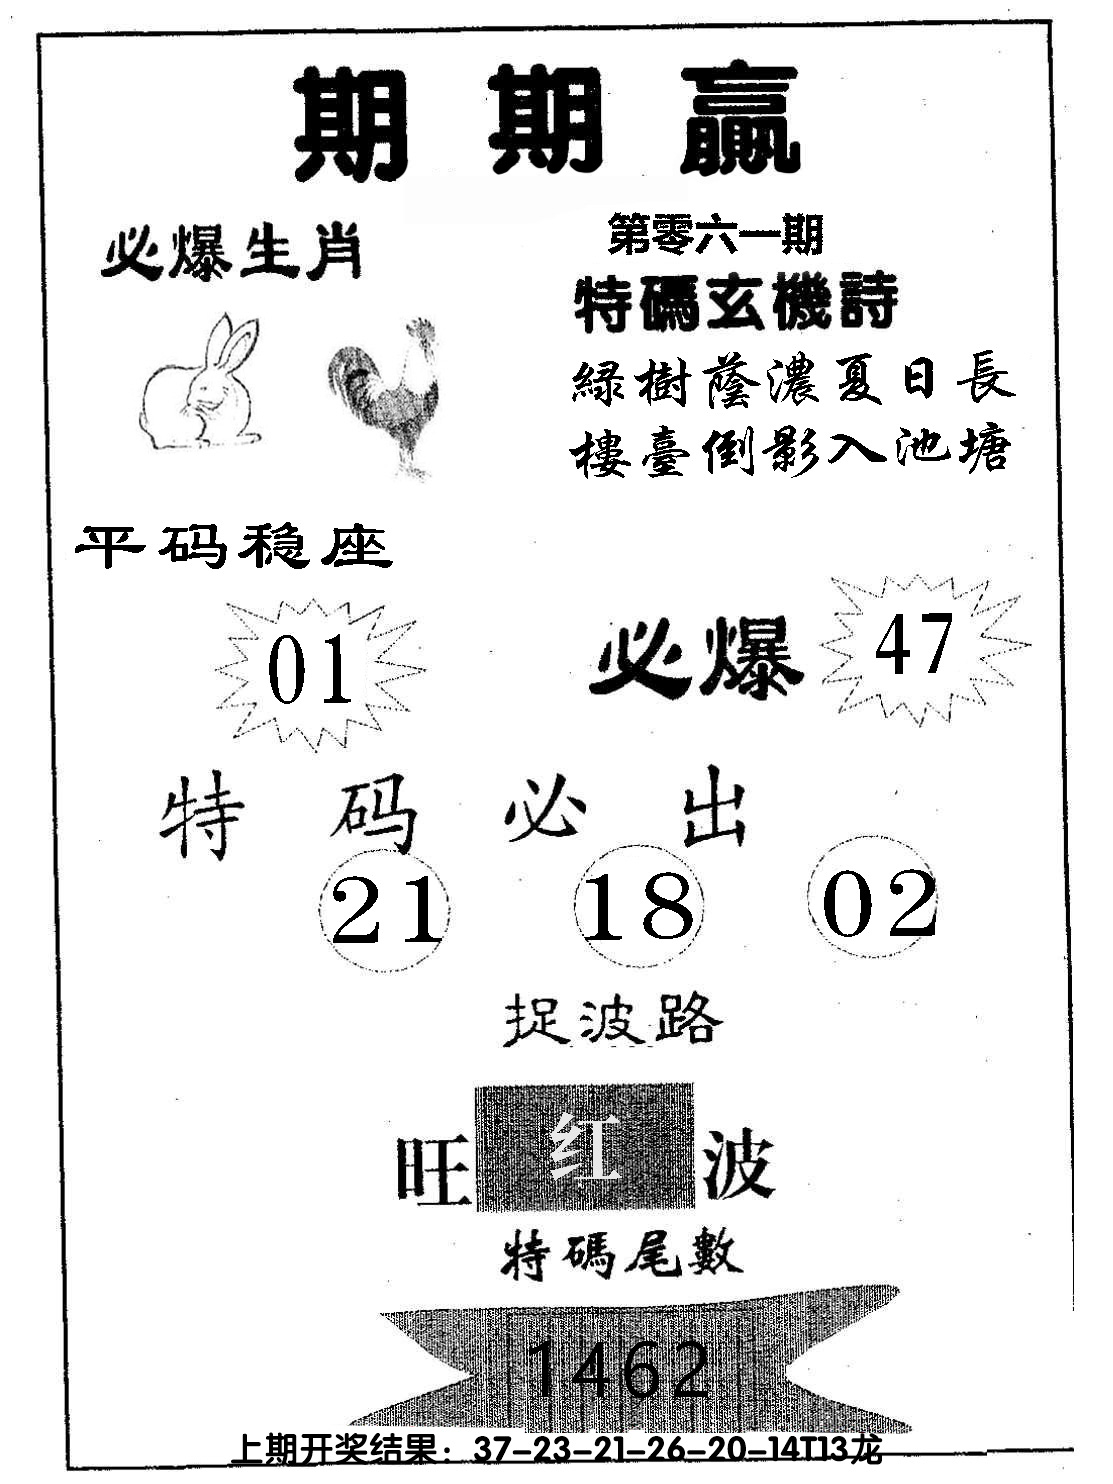 期期赢
第零六一期
必爆生肖
特碼玄機詩
緑樹蔭濃夏日長
樓臺倒影入池塘
平码稳座
01
必爆
47
特码必出
21 18 02
捉波路
旺红波
特碼尾數
1462
上期开奖结果：37-23-21-26-20-14T13龙